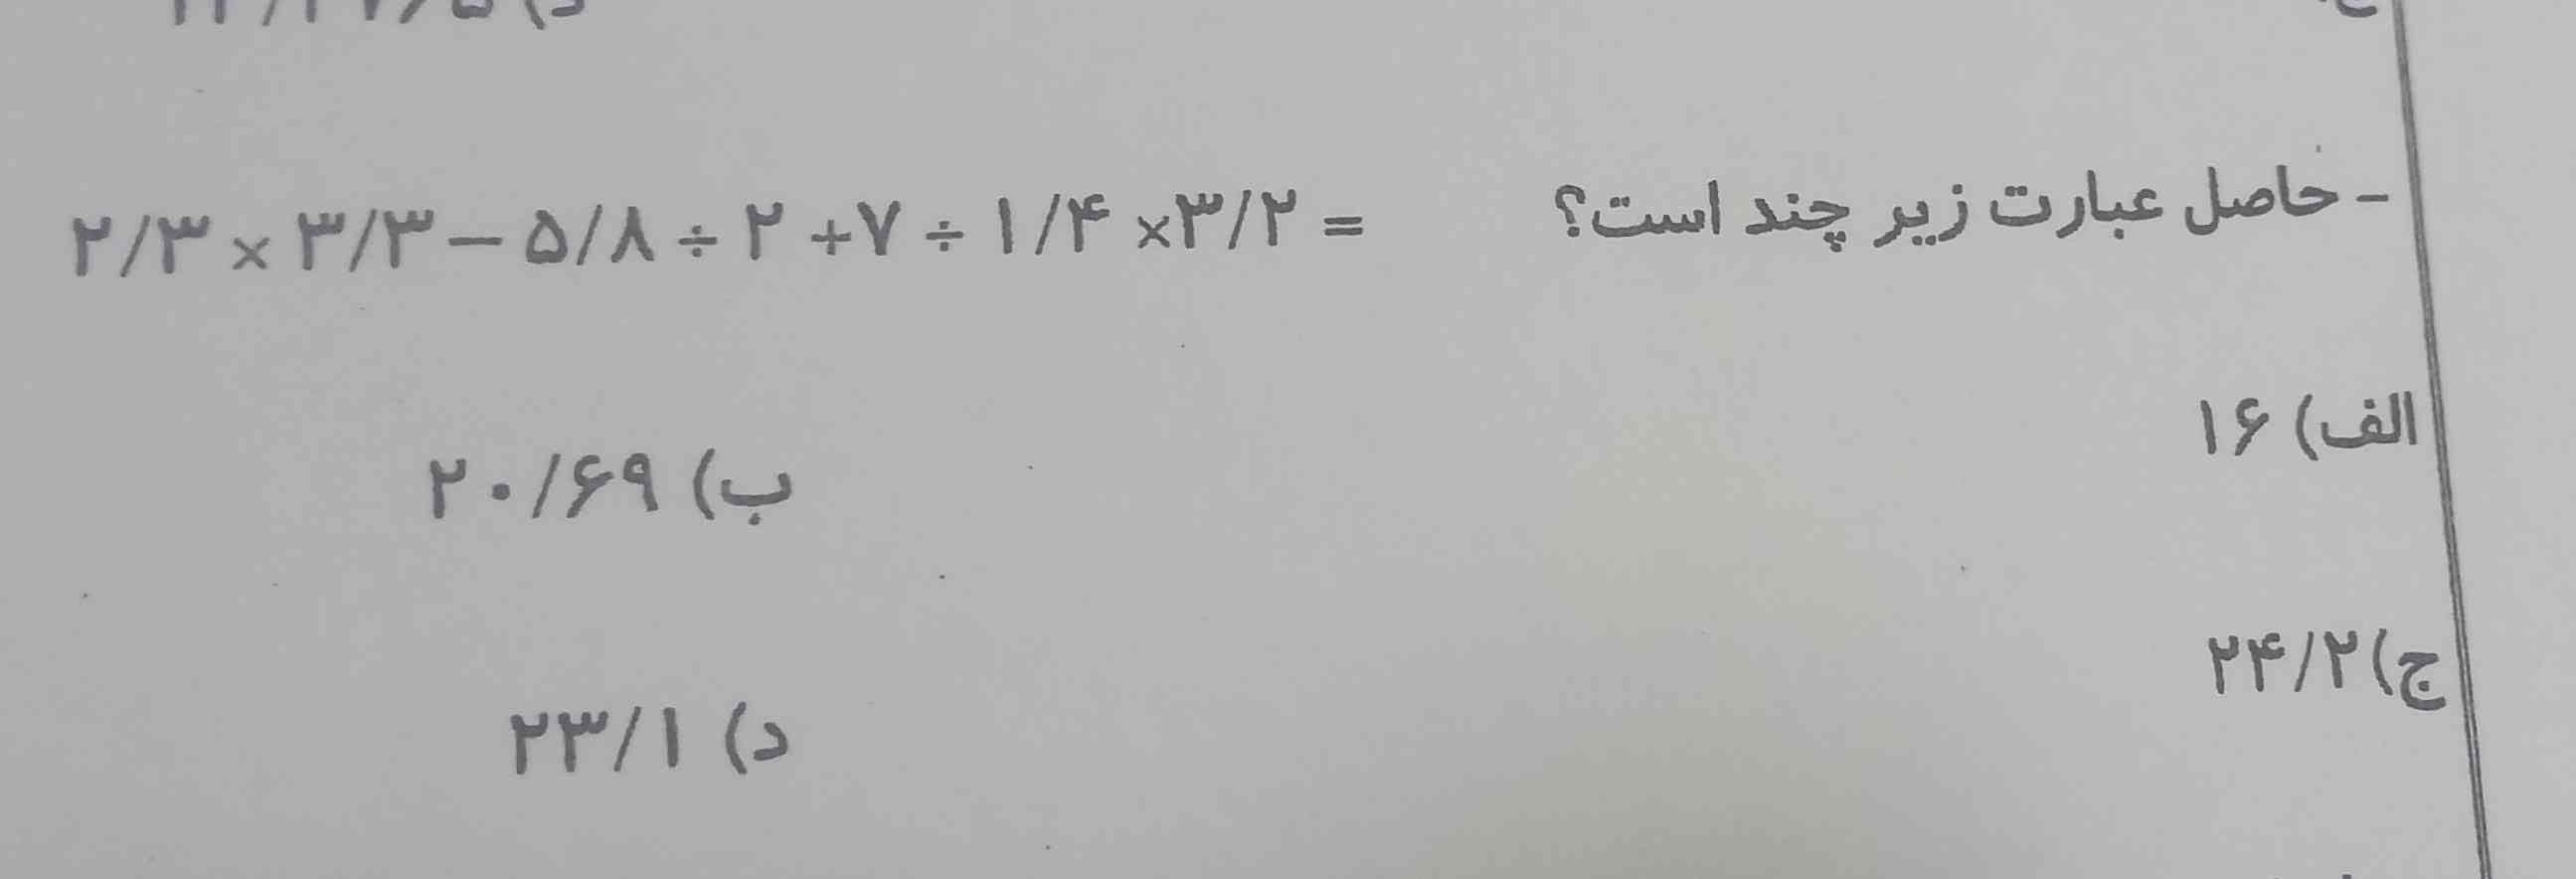 - حاصل عبارت زیر چند است؟ ۲/۳ × ۳/۳ – ۵/۸ ÷ ۲ +۷ ÷ ۱/۴ ×۳/۲ =
الف) ۱۶
ب) ۲۰/۶۹
ج) ۲۴/۲
د) ۲۳/۱